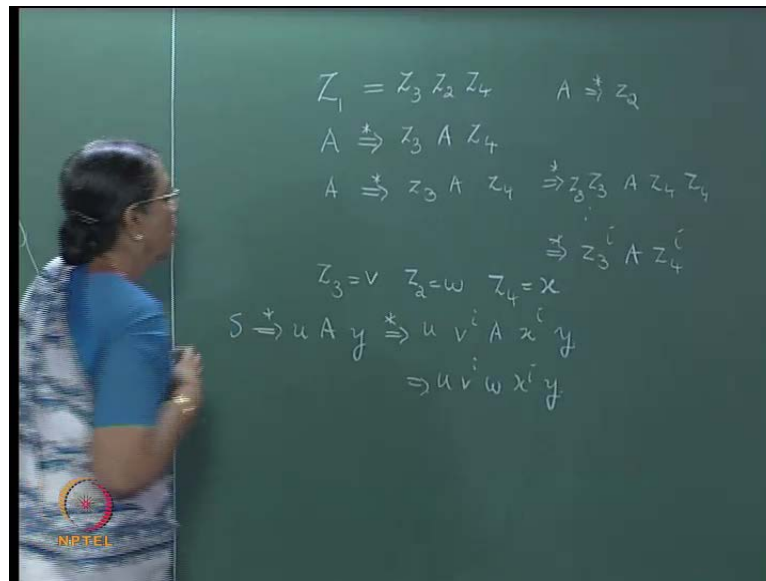 Z₁ = Z₃ Z₂ Z₄ A ⇒* Z₂
A ⇒* Z₃ A Z₄
A ⇒* Z₃ A Z₄ ⇒* Z₃ Z₃ A Z₄ Z₄
⋮
⇒* Z₃ⁱ A Z₄ⁱ
Z₃ = v Z₂ = w Z₄ = x
S ⇒* u A y ⇒* u vⁱ A xⁱ y
⇒ u vⁱ w xⁱ y
NPTEL